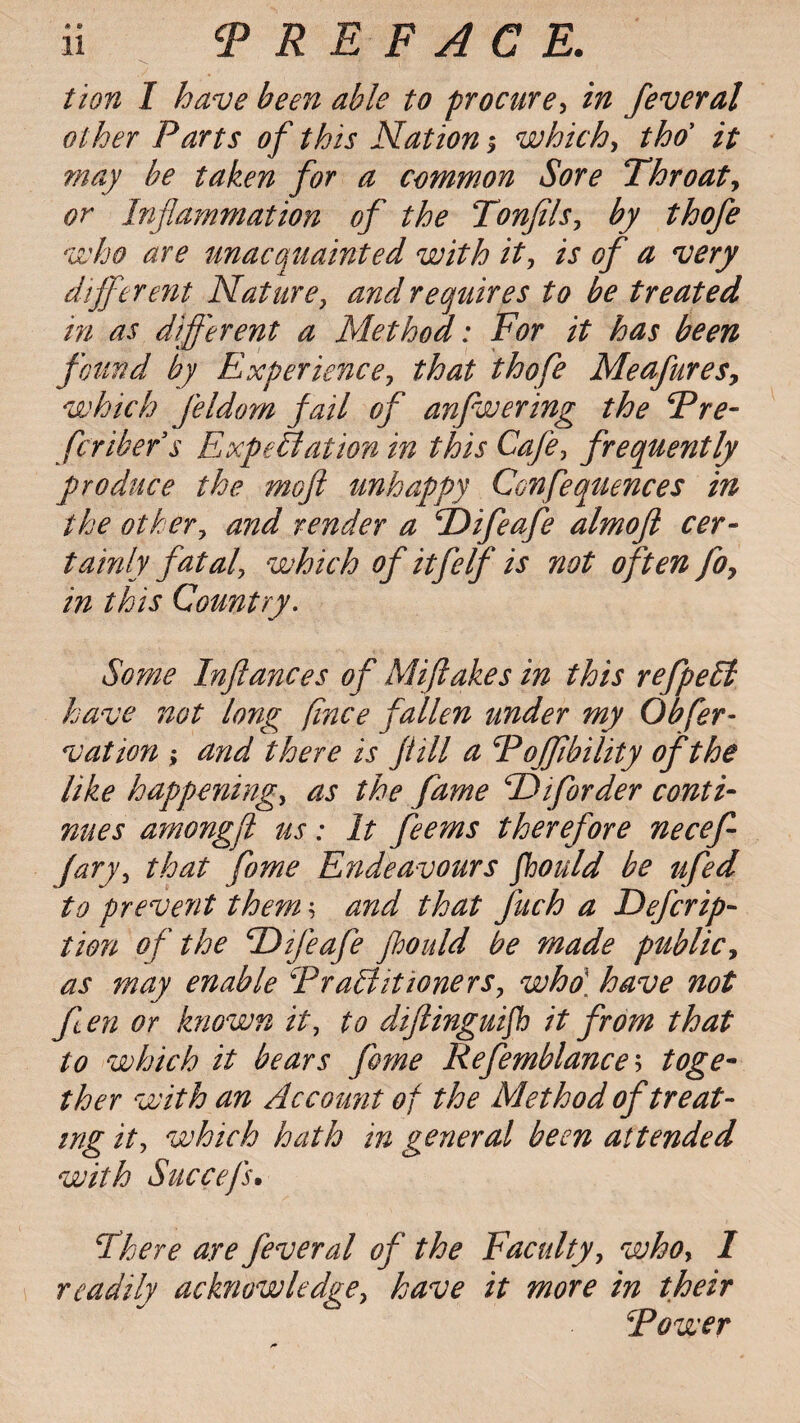 ii PREFACE.
tion I have been able to procure, in ſeveral
other Parts of this Nation; which, tho' it
may be taken for a common Sore Throat,
or Inflammation of the Tonſils, by thoſe
who are unacquainted with it, is of a very
different Nature, and requires to be treated
in as different a Method: For it has been
found by Experience, that thoſe Meaſures,
which ſeldom fail of anſwering the Pre-
ſcriber's Expectation in this Caſe, frequently
produce the moſt unhappy Conſequences in
the other, and render a Diſeaſe almoſt cer-
tainly fatal, which of itſelf is not often ſo,
in this Country.
Some Inſtances of Miſtakes in this reſpect
have not long ſince fallen under my Obſer-
vation; and there is ſtill a Poſſibility of the
like happening, as the ſame Diſorder conti-
nues amongſt us: It ſeems therefore neceſ-
ſary, that ſome Endeavours ſhould be uſed
to prevent them; and that ſuch a Deſcrip-
tion of the Diſeaſe ſhould be made public,
as may enable Practitioners, who have not
ſeen or known it, to diſtinguiſh it from that
to which it bears ſome Reſemblance; toge-
ther with an Account of the Method of treat-
ing it, which hath in general been attended
with Succeſs.
There are ſeveral of the Faculty, who, I
readily acknowledge, have it more in their
Power